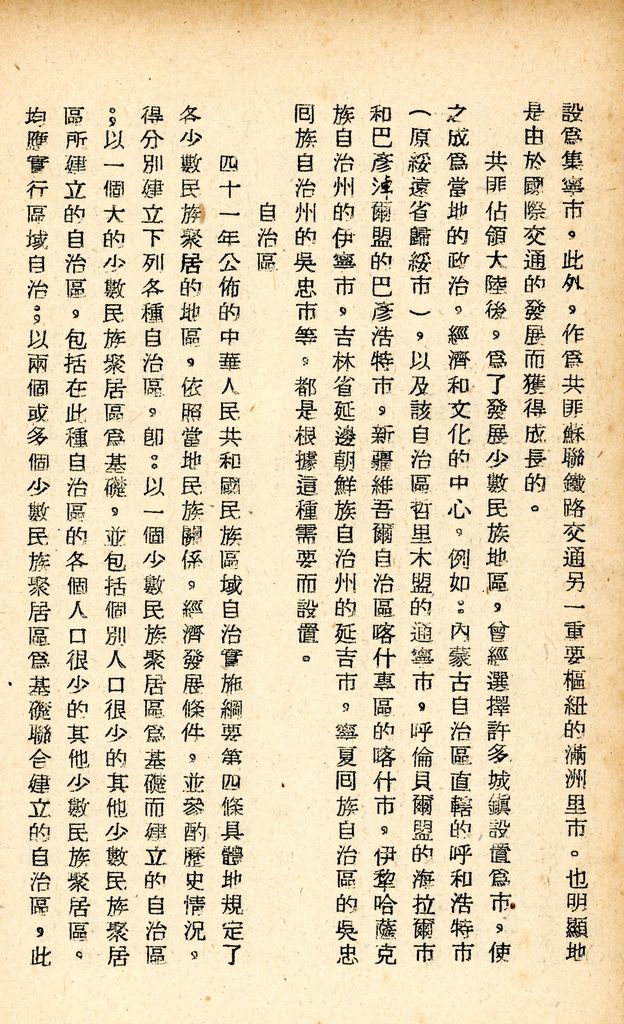 設爲集寧市。此外，作爲共匪蘇聯鐵路交通另一重要樞紐的滿洲里市。也明顯地
是由於國際交通的發展而獲得成長的。
共匪佔領大陸後，爲了發展少數民族地區，曾經選擇許多城鎮設置爲市，使
之成爲當地的政治，經濟和文化的中心，例如：內蒙古自治區直轄的呼和浩特市
（原綏遠省歸綏市），以及該自治區哲里木盟的通寧市，呼倫貝爾盟的海拉爾市
和巴彥淖爾盟的巴彥浩特市，新疆維吾爾自治區喀什專區的喀什市，伊犂哈薩克
族自治州的伊寧市，吉林省延邊朝鮮族自治州的延吉市，寧夏囘族自治區的吳忠
囘族自治州的吳忠市等，都是根據這種需要而設置。
自治區
四十一年公佈的中華人民共和國民族區域自治實施綱要第四條具體地規定了
各少數民族聚居的地區，依照當地民族關係，經濟發展條件，並參酌歷史情況，
得分別建立下列各種自治區，卽：以一個少數民族聚居區爲基礎而建立的自治區
；以一個大的少數民族聚居區爲基礎，並包括個別人口很少的其他少數民族聚居
區所建立的自治區，包括在此種自治區的各個人口很少的其他少數民族聚居區。
均應實行區域自治；以兩個或多個少數民族聚居區爲基礎聯合建立的自治區，此